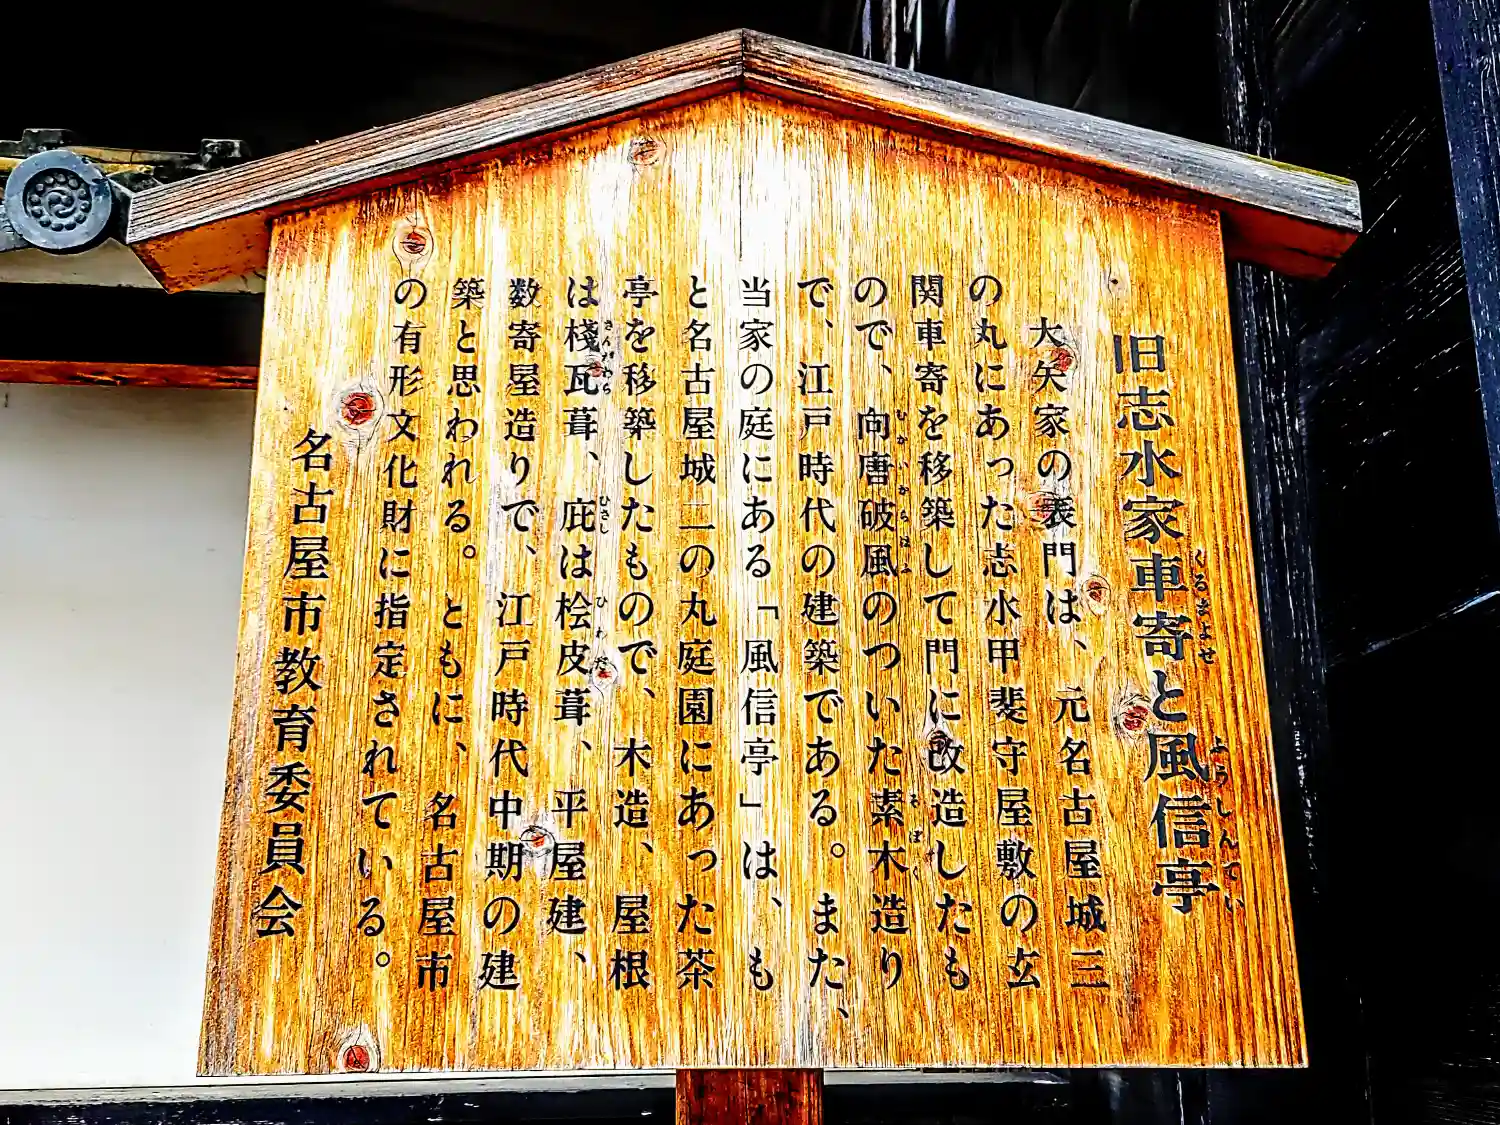 旧志水家車寄と風信亭
くるまよせ
ふうしんてい
大矢家の表門は、元名古屋城三
の丸にあった志水甲斐守屋敷の玄
関車寄を移築して門に改造したも
ので、向唐破風のついた素木造り
むかいからはふ
そぼく
で、江戸時代の建築である。また、
当家の庭にある「風信亭」は、も
と名古屋城二の丸庭園にあった茶
亭を移築したもので、木造、屋根
は棧瓦葺、庇は桧皮葺、平屋建、
さんがわら
ひさし
ひわだ
数寄屋造りで、江戸時代中期の建
築と思われる。ともに、名古屋市
の有形文化財に指定されている。
名古屋市教育委員会